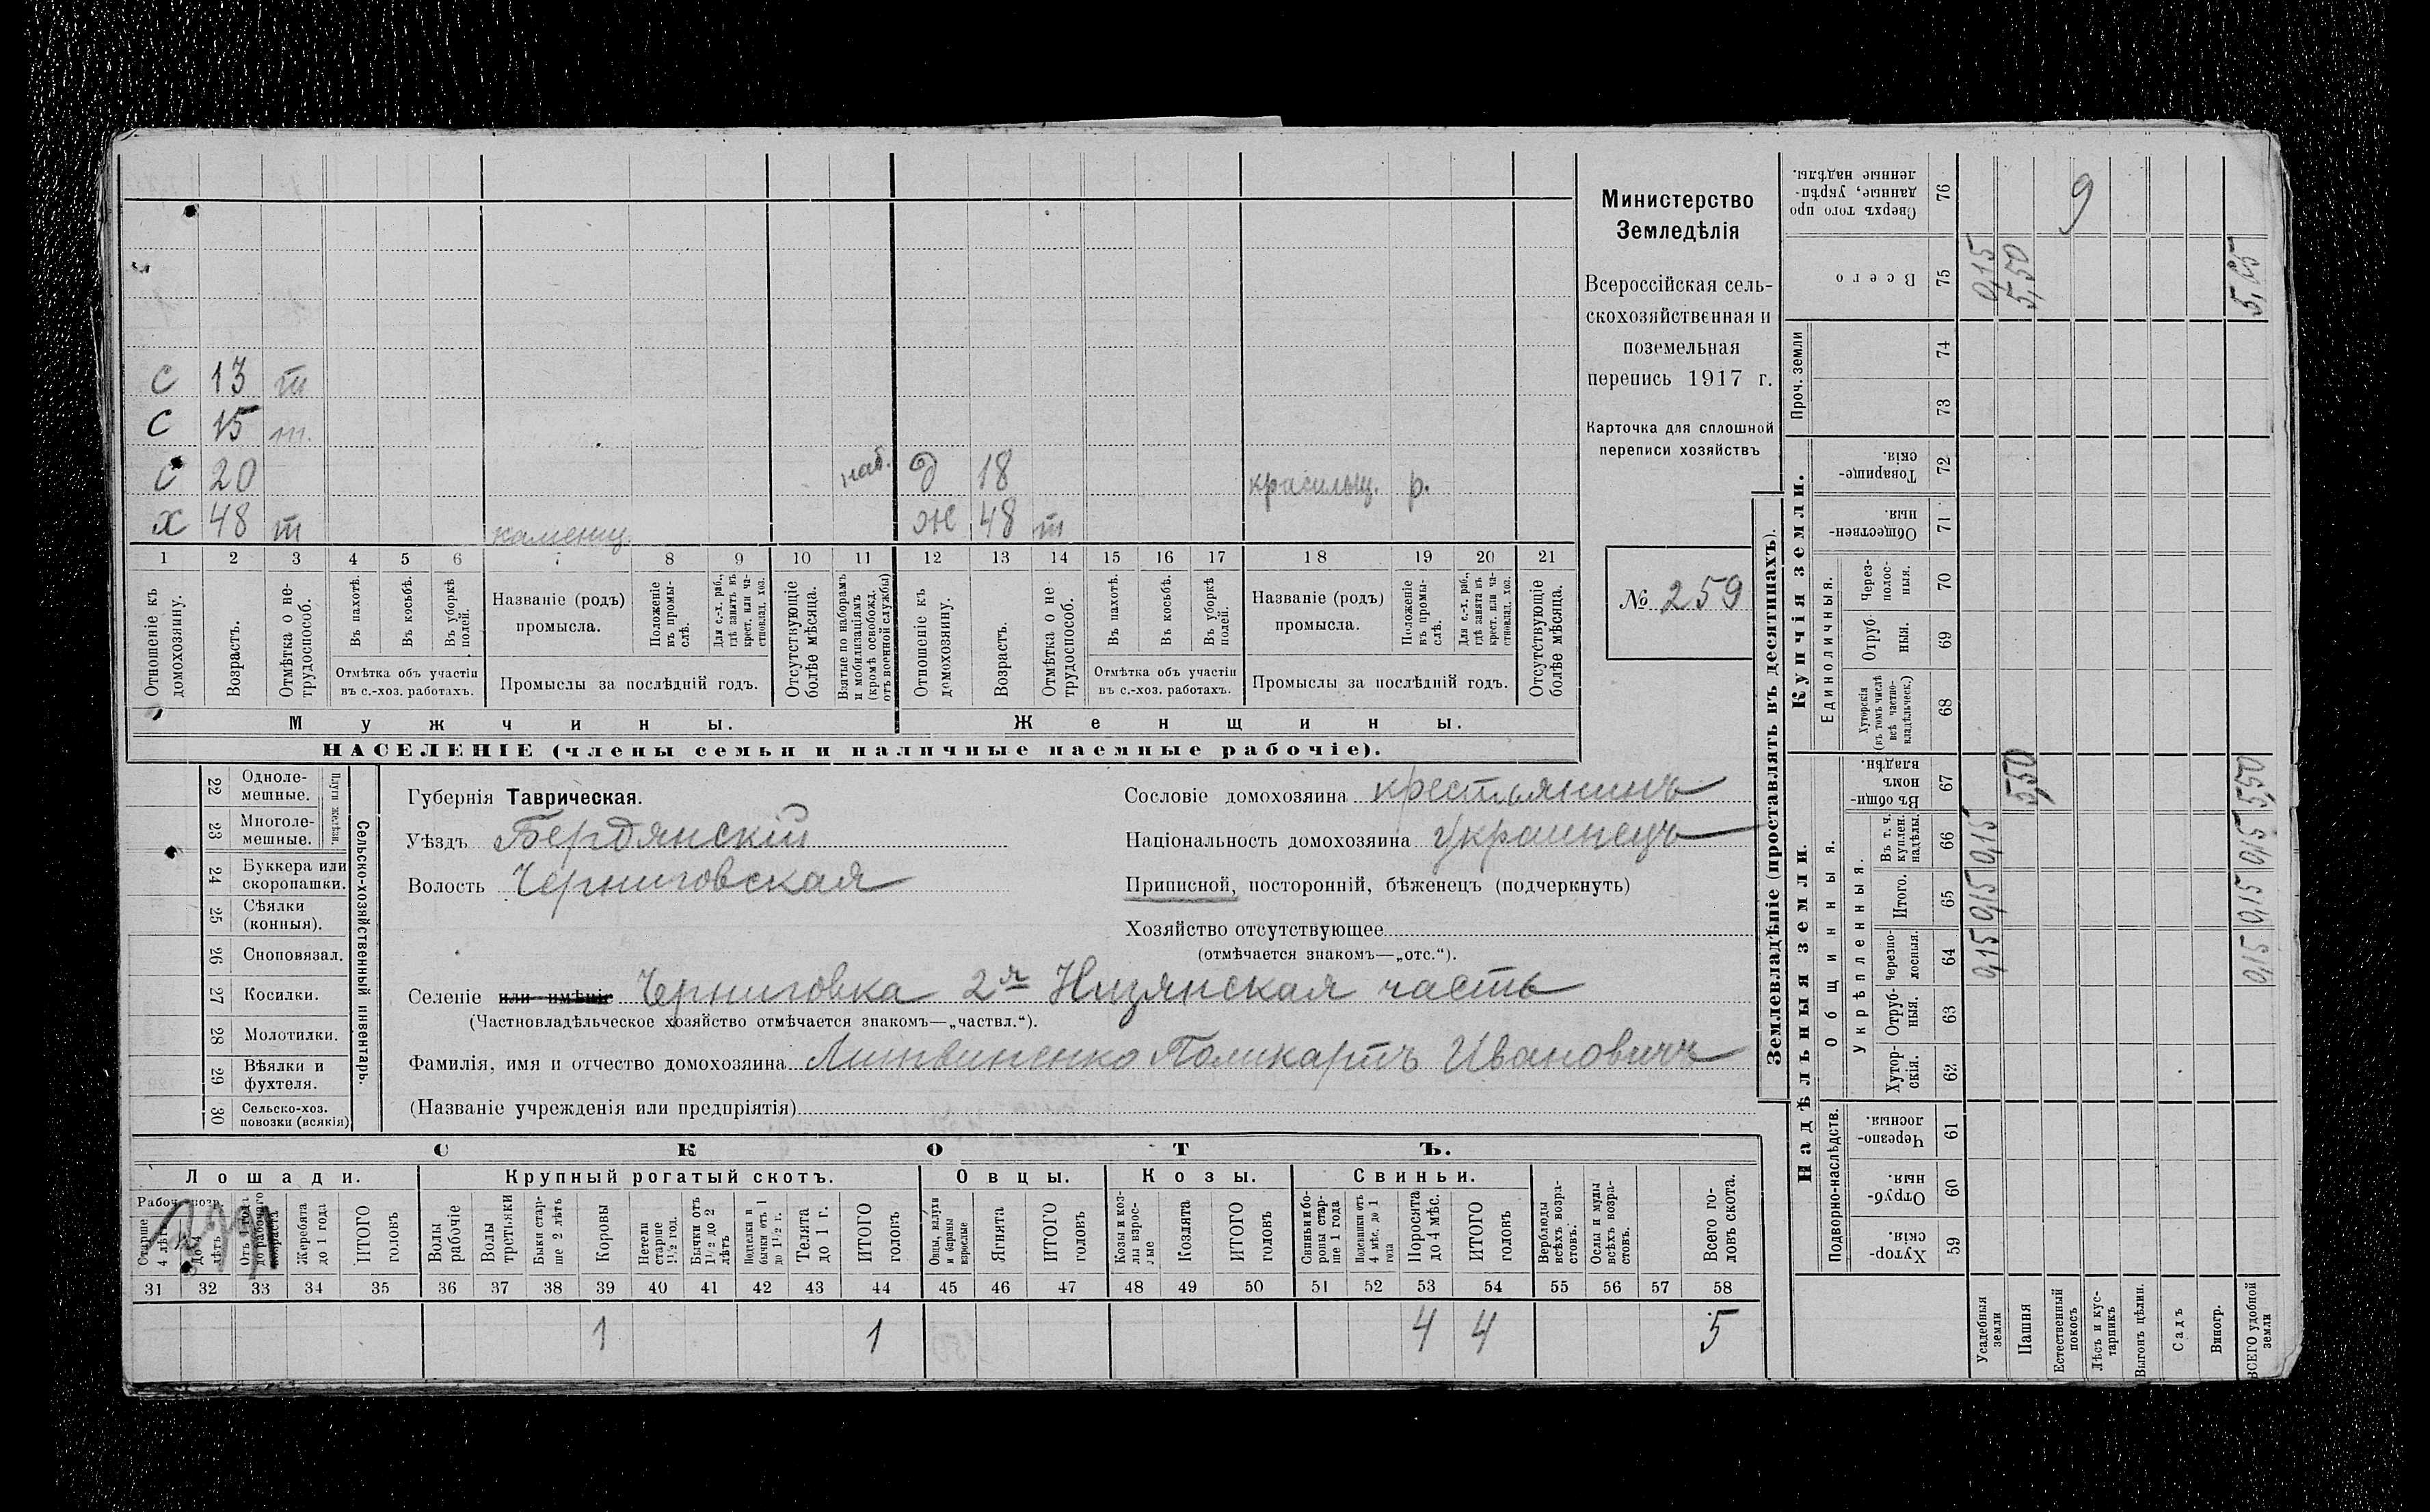 С 13 т
С 15 т.
С 20 наб. д 18 красильщ. р.
Х 48 т каменщ. ж 48 т
1 2 3 4 5 6 7 8 9 10 11 12 13 14 15 16 17 18 19 20 21
Отношеніе къ домохозяину.
Возрастъ.
Отмѣтка о нетрудоспособ.
Въ пахотѣ.
Въ косьбѣ.
Въ уборкѣ полей.
Отмѣтка объ участіи
въ с.-хоз. работахъ.
Названіе (родъ)
промысла.
Положеніе въ промыслѣ.
Для с.-х. раб., гдѣ занятъ въ крест. или частновлад. хоз.
Промыслы за послѣдній годъ.
Отсутствующіе болѣе мѣсяца.
Взятые по наборамъ и мобилизаціямъ (кромѣ освобожд. отъ военной службы)
Отношеніе къ домохозяину.
Возрастъ.
Отмѣтка о нетрудоспособ.
Въ пахотѣ.
Въ косьбѣ.
Въ уборкѣ полей.
Отмѣтка объ участіи
въ с.-хоз. работахъ.
Названіе (родъ)
промысла.
Положеніе въ промыслѣ.
Для с.-х. раб., гдѣ занята въ крест. или частновлад. хоз.
Промыслы за послѣдній годъ.
Отсутствующіе болѣе мѣсяца.
Мужчины.
Женщины.
НАСЕЛЕНІЕ (члены семьи и наличные наемные рабочіе).
Министерство
Земледѣлія
Всероссійская сель-
скохозяйственная и
поземельная
перепись 1917 г.
Карточка для сплошной
переписи хозяйствъ
№ 259
22 Однолемешные.
23 Многолемешные.
Плуги желѣзн.
24 Буккера или скоропашки.
25 Сѣялки (конныя).
26 Сноповязал.
27 Косилки.
28 Молотилки.
29 Вѣялки и фухтеля.
30 Сельско-хоз. повозки (всякія)
Сельско-хозяйственный инвентарь.
Губернія Таврическая.
Уѣздъ Бердянскій
Волость Черниговская
Сословіе домохозяина крестьянинъ
Національность домохозяина украинецъ
Приписной, посторонній, бѣженецъ (подчеркнуть)
Хозяйство отсутствующее
(отмѣчается знакомъ—„отс.“).
Селеніе или имѣніе Черниговка 2я Низянская часть
(Частновладѣльческое хозяйство отмѣчается знакомъ—„частвл.“).
Фамилія, имя и отчество домохозяина Литвиненко Поликарпъ Ивановичъ
(Названіе учрежденія или предпріятія)
СКОТЪ.
Лошади. Крупный рогатый скотъ. Овцы. Козы. Свиньи.
Старше 4 лѣтъ
Жеребята до 1 года
ИТОГО головъ
Волы рабочіе
Волы третьяки
Быки старше 2 лѣтъ
Коровы
Нетели старше 1½ год.
Бычки отъ 1½ до 2 лѣтъ
Подтелки и бычки отъ 1 до 1½ г.
Телята до 1 г.
ИТОГО головъ
Овцы, валухи и бараны взрослые
Ягнята
ИТОГО головъ
Козы и козлы взрослые
Козлята
ИТОГО головъ
Свиньи и бороны старше 1 года
Подсвинки отъ 4 мѣс. до 1 года
Поросята до 4 мѣс.
ИТОГО головъ
Верблюды всѣхъ возрастовъ.
Ослы и мулы всѣхъ возрастовъ.
Всего головъ скота.
31 32 33 34 35 36 37 38 39 40 41 42 43 44 45 46 47 48 49 50 51 52 53 54 55 56 57 58
1 1 4 4 5
Землевладѣніе (проставлять въ десятинахъ).
Сверхъ того проданные, укрѣпленные надѣлы. 76 9
Всего 75 0,15 5,50 5,65
Проч. земли
74
73
Купчія земли.
Товарищескія. 72
Общественныя. 71
Единоличныя.
Черезполосныя. 70
Отрубныя. 69
Хуторскія (въ томъ числѣ всѣ частновладѣльческ.) 68
Надѣльныя земли.
Общинныя.
Въ общинномъ владѣн. 67 5,50 5,50
Укрѣпленныя.
Въ т. ч. куплен. надѣлы. 66 0,15 0,15
Итого. 65 0,15 0,15
Черезполосныя. 64 0,15 0,15
Отрубныя. 63
Хуторскія. 62
Подворно-наслѣдств.
Черезполосныя. 61
Отрубныя. 60
Хуторскія. 59
Усадебныя земли
Пашня
Естественный покосъ
Лѣсъ и кустарникъ
Выгонъ цѣлин.
Садъ
Виногр.
ВСЕГО удобной земли